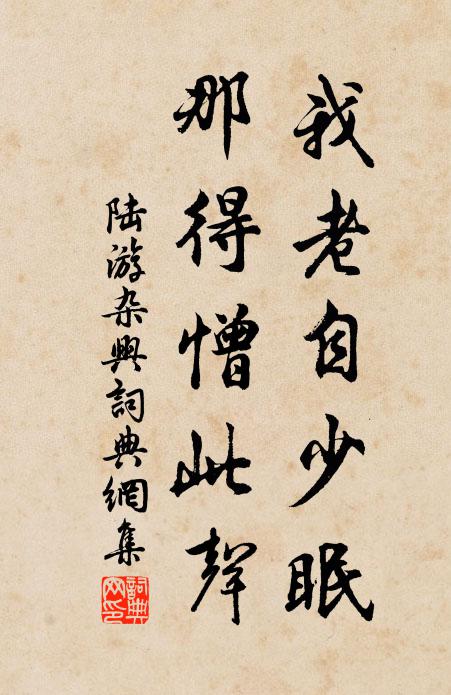 我老自少眠
那得憎此聲
陆游杂興詞典網集
詞典网印